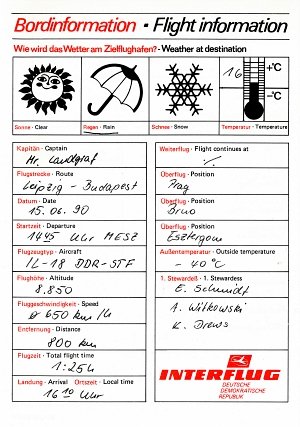 Bordinformation · Flight information
Wie wird das Wetter am Zielflughafen? · Weather at destination
16
+°C
-°C
Sonne · Clear
Regen · Rain
Schnee · Snow
Temperatur · Temperature
Kapitän · Captain
Mr. Landgraf
Flugstrecke · Route
Leipzig - Budapest
Datum · Date
15.06.90
Startzeit · Departure
1445 Uhr MESZ
Flugzeugtyp · Aircraft
IL-18 DDR-STF
Flughöhe · Altitude
8.850
Fluggeschwindigkeit · Speed
ø 650 km/h
Entfernung · Distance
800 km
Flugzeit · Total flight time
1:25h
Landung · Arrival Ortszeit · Local time
16 10 Uhr
Weiterflug · Flight continues at
Überflug · Position
Prag
Überflug · Position
Brno
Überflug · Position
Esztergom
Außentemperatur · Outside temperature
- 40°C
1. Stewardeß · 1. Stewardess
E. Schmidt
A. Witkowski
K. Drews
INTERFLUG
DEUTSCHE
DEMOKRATISCHE
REPUBLIK